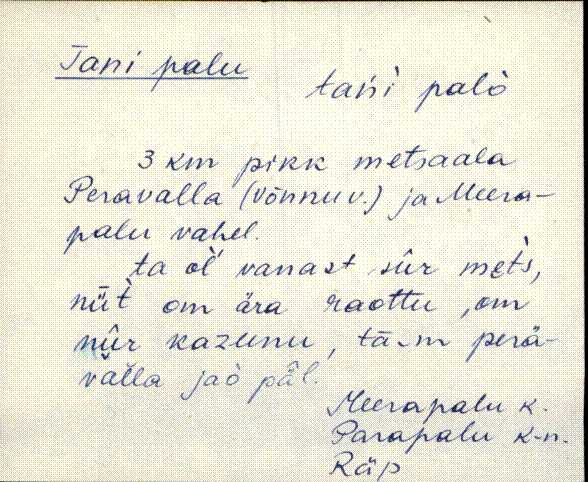 Tani palu
tańi palò
3 km pikk metsaala
Peravalla (Võnnu v.) ja Meera-
palu vahel.
ta ol´ vanast sûr mets,
nüt om ära raottu, om
nûr kazunu, tä-m perä-
valla jaò pǟl.
Meerapalu k.
Parapalu k-n.
Räp